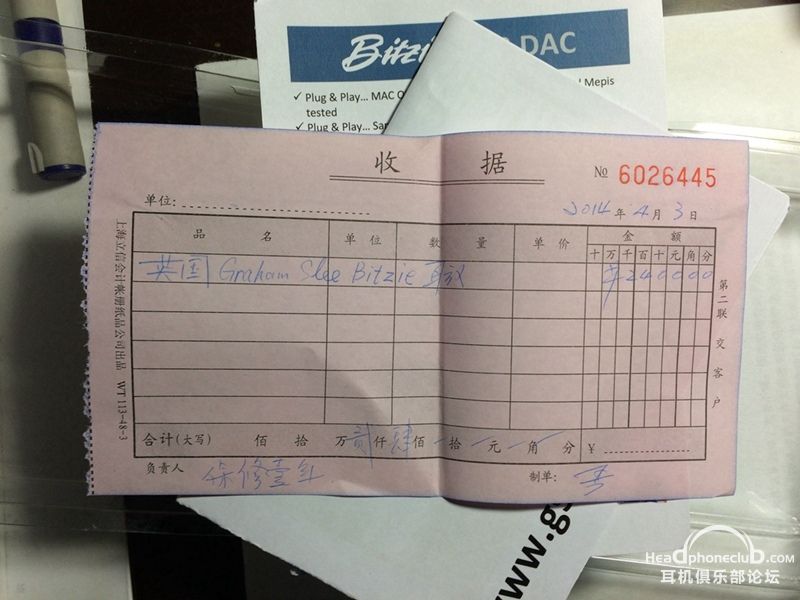 Bitzie DAC
✓ Plug & Play... MAC O
Mepis
tested
✓ Plug & Play... Sa
收 据
№ 6026445
单位:
2014 年 4 月 3 日
品 名 单 位 数 量 单 价 金 额
十 万 千 百 十 元 角 分
英国 Graham Slee Bitzie 耳放 ¥ 2 4 0 0 0 0
合计(大写) 佰 拾 万 贰 仟 肆 佰 拾 元 角 分 ¥
负责人 保修壹年 制单:
上海立信会计帐册纸品公司出品 WT 113-48-3
第二联 交客户
www.gs
Headphoneclub.com
耳机俱乐部论坛